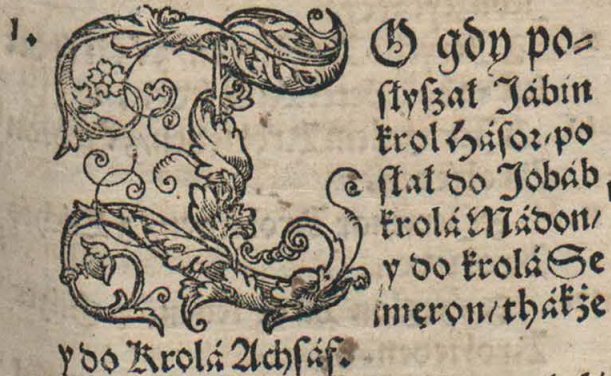 1. TO gdy po⸗
ſłyſzał Jábin
krol Háſor/ po
ſłał do Jobáb
krolá Mádon/
y do krolá Se
meron/ thákże
y do Krolá Achſáf.